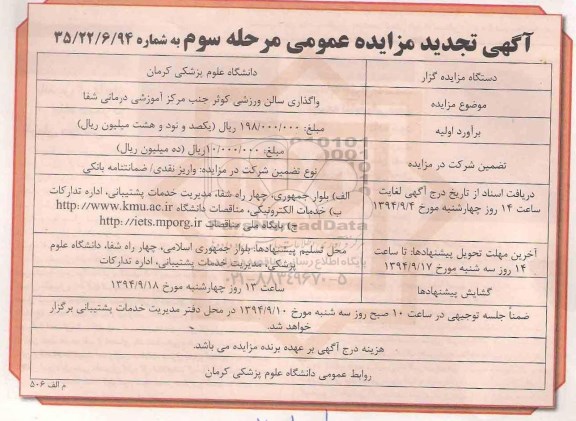 آگهی تجدید مزایده عمومی مرحله سوم به شماره ۳۵/۲۲/۶/۹۴
دستگاه مزایده گزار
دانشگاه علوم پزشکی کرمان
موضوع مزایده
واگذاری سالن ورزشی کوثر جنب مرکز آموزشی درمانی شفا
برآورد اولیه
مبلغ: ۱۹۸/۰۰۰/۰۰۰ ریال (یکصد و نود و هشت میلیون ریال)
تضمین شرکت در مزایده
مبلغ: ۱۰/۰۰۰/۰۰۰ریال (ده میلیون ریال)
نوع تضمین شرکت در مزایده: واریز نقدی/ ضمانتنامه بانکی
دریافت اسناد از تاریخ درج آگهی لغایت
ساعت ۱۴ روز چهارشنبه مورخ ۱۳۹۴/۹/۴
الف) بلوار جمهوری، چهار راه شفا، مدیریت خدمات پشتیبانی، اداره تدارکات
ب) خدمات الکترونیکی، مناقصات دانشگاه http://www.kmu.ac.ir
ج) پایگاه ملی مناقصات http://iets.mporg.ir
آخرین مهلت تحویل پیشنهادها: تا ساعت
۱۴ روز سه شنبه مورخ ۱۳۹۴/۹/۱۷
محل تسلیم پیشنهادها: بلوار جمهوری اسلامی، چهار راه شفا، دانشگاه علوم
پزشکی، مدیریت خدمات پشتیبانی، اداره تدارکات
پایگاه اطلاع رسانی
۰۲۱-۸۸۳۴۹۶۷۰-۵
گشایش پیشنهادها
ساعت ۱۳ روز چهارشنبه مورخ ۱۳۹۴/۹/۱۸
ضمنا جلسه توجیهی در ساعت ۱۰ صبح روز سه شنبه مورخ ۱۳۹۴/۹/۱۰ در محل دفتر مدیریت خدمات پشتیبانی برگزار
خواهد شد.
هزینه درج آگهی بر عهده برنده مزایده می باشد.
روابط عمومی دانشگاه علوم پزشکی کرمان
م الف ۵۰۶